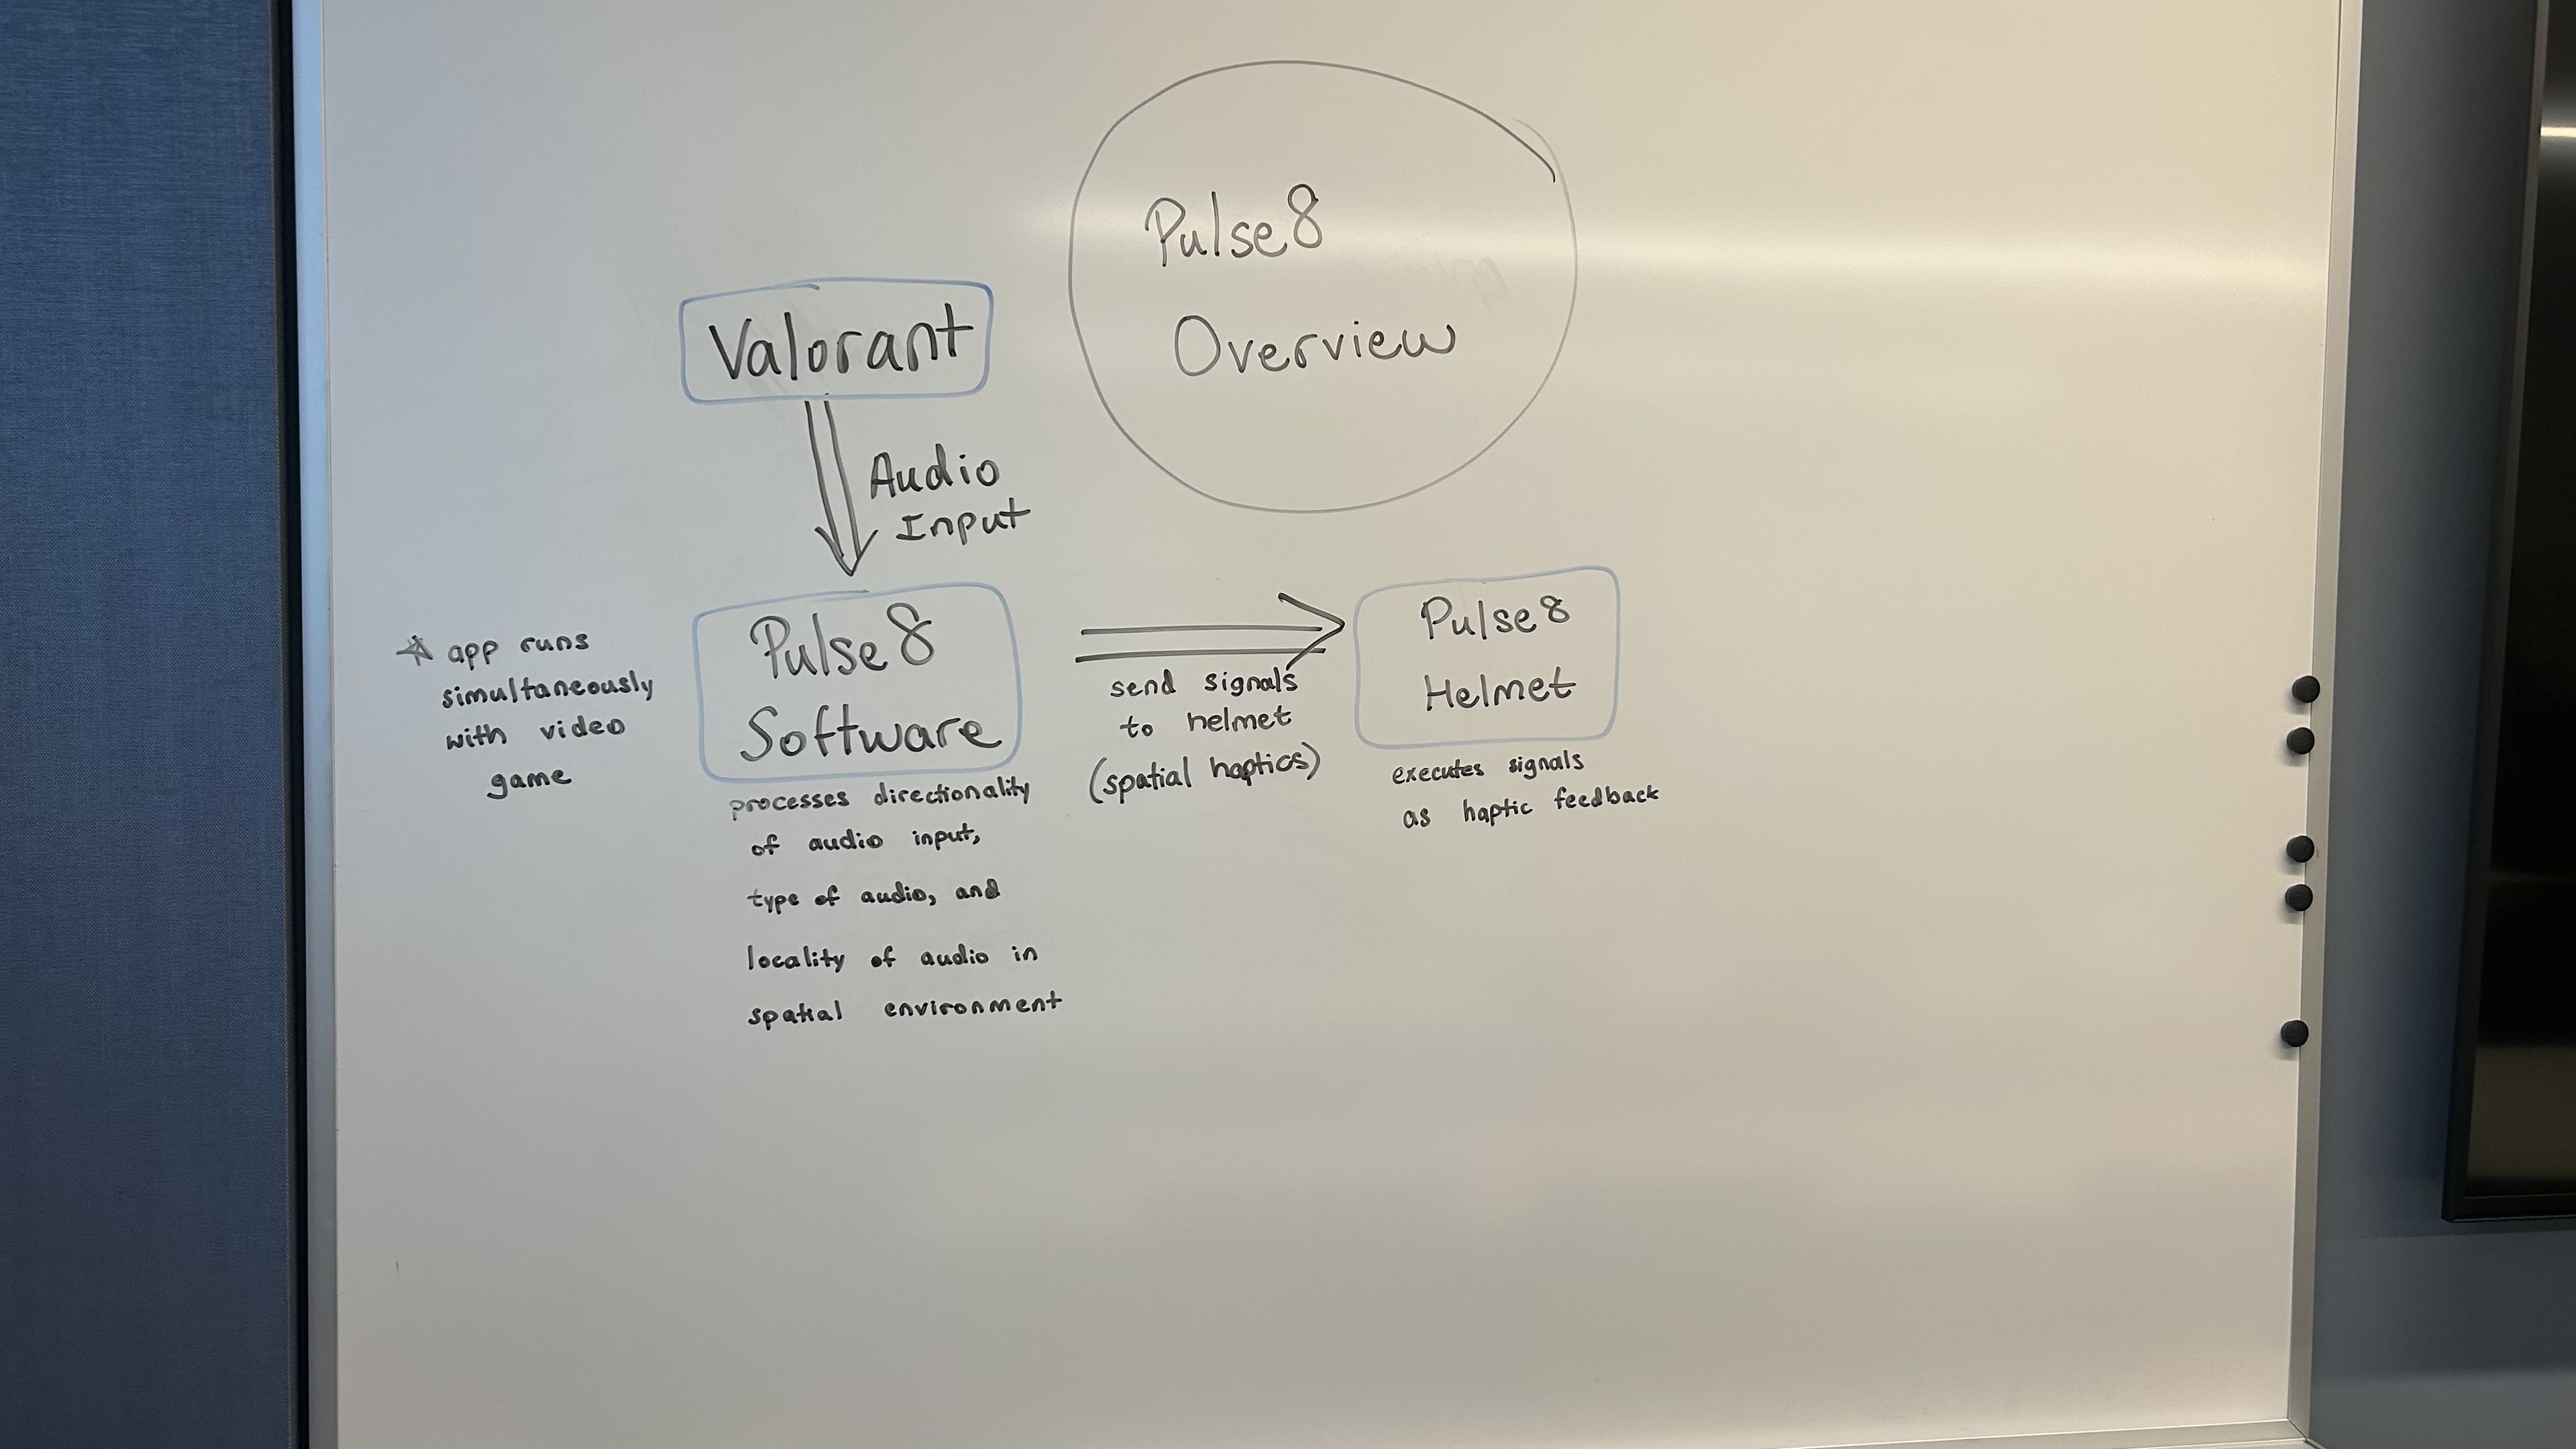 Pulse8
Overview
Valorant
Audio
Input
Pulse8
Software
processes directionality
of audio input,
type of audio, and
locality of audio in
spatial environment
☆ app runs
simultaneously
with video
game
send signals
to helmet
(spatial haptics)
Pulse8
Helmet
executes signals
as haptic feedback